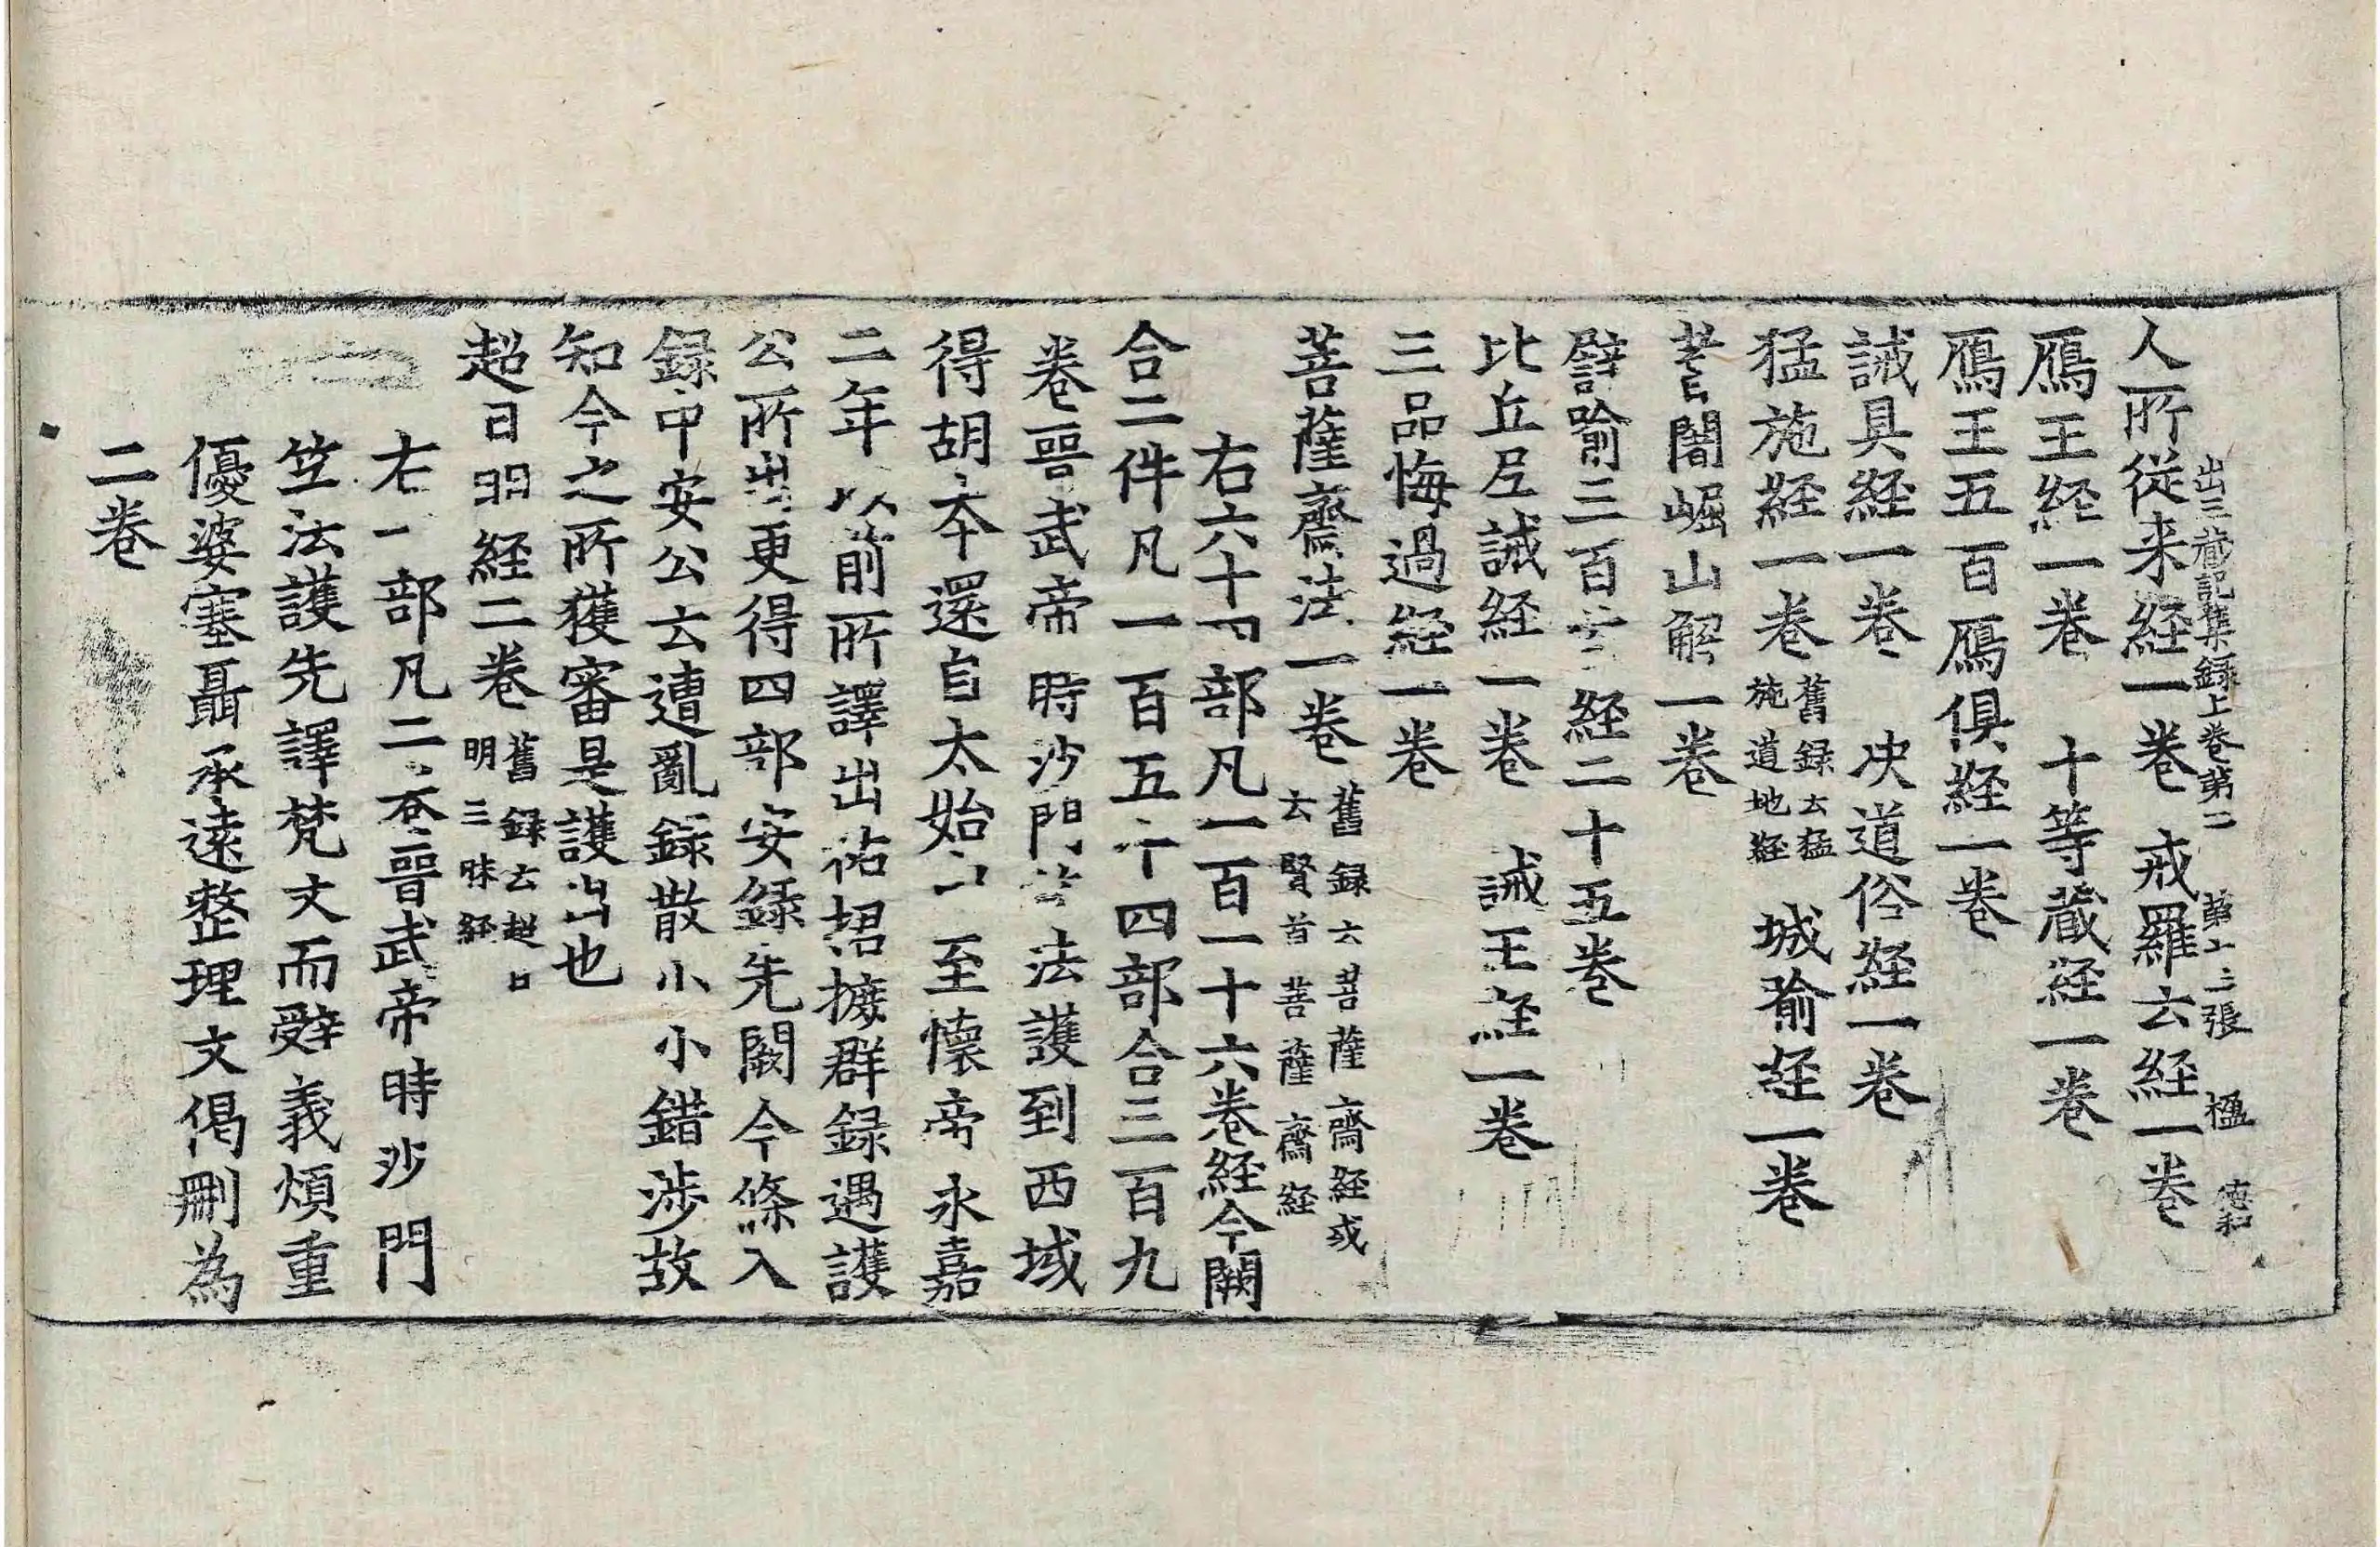 出三藏記集録上卷第二 第十三張 楹
人所從来経一卷 戒羅云経一卷
鴈王経一卷 十等藏経一卷
鴈王五百鴈俱経一卷
誡具経一卷 决道俗経一卷
猛施経一卷 舊録云猛施道地経 城喻経一卷
耆闍崛山解一卷
譬喻三百首経二十五卷
比丘尼誡経一卷 誡王経一卷
三品悔過経一卷
菩薩齋法一卷 舊録云菩薩齋経或云賢首菩薩齋経
右六十四部凡一百一十六卷経今闕
合二件凡一百五十四部合三百九
卷晉武帝時沙門竺法護到西域
得胡本還自太始中至懷帝永嘉
二年以前所譯出祐捃摭群録遇護
公所出更得四部安録先闕今條入
録中安公云遭亂録散小小錯涉故
知今之所獲審是護出也
超日明経二卷 舊録云超日明三昧経
右一部凡二卷晉武帝時沙門
竺法護先譯梵文而辭義煩重
優婆塞聶承遠整理文偈刪為
二卷